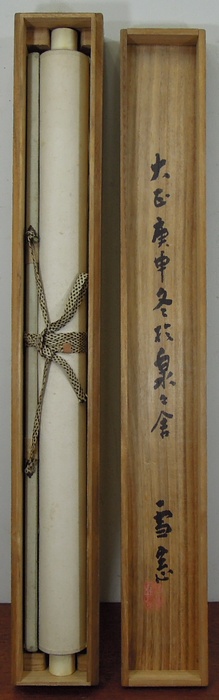 大正庚申冬於泉々舎
雪窓